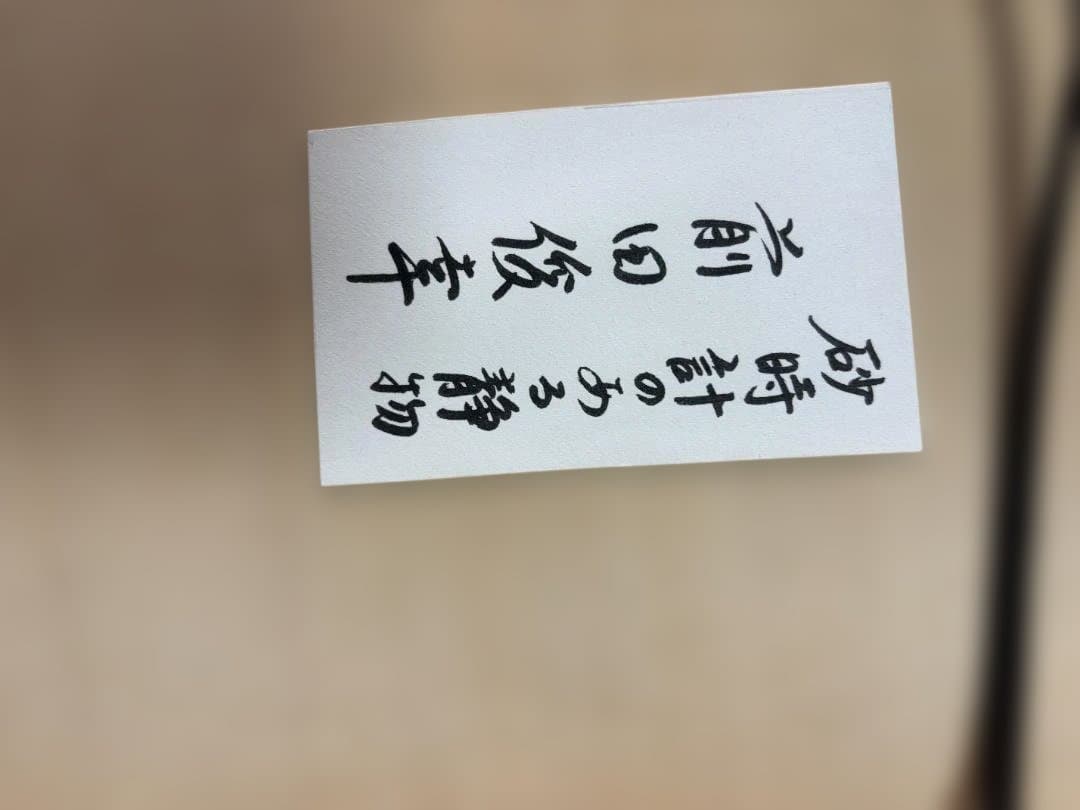 砂時計のある静物
前田俊幸